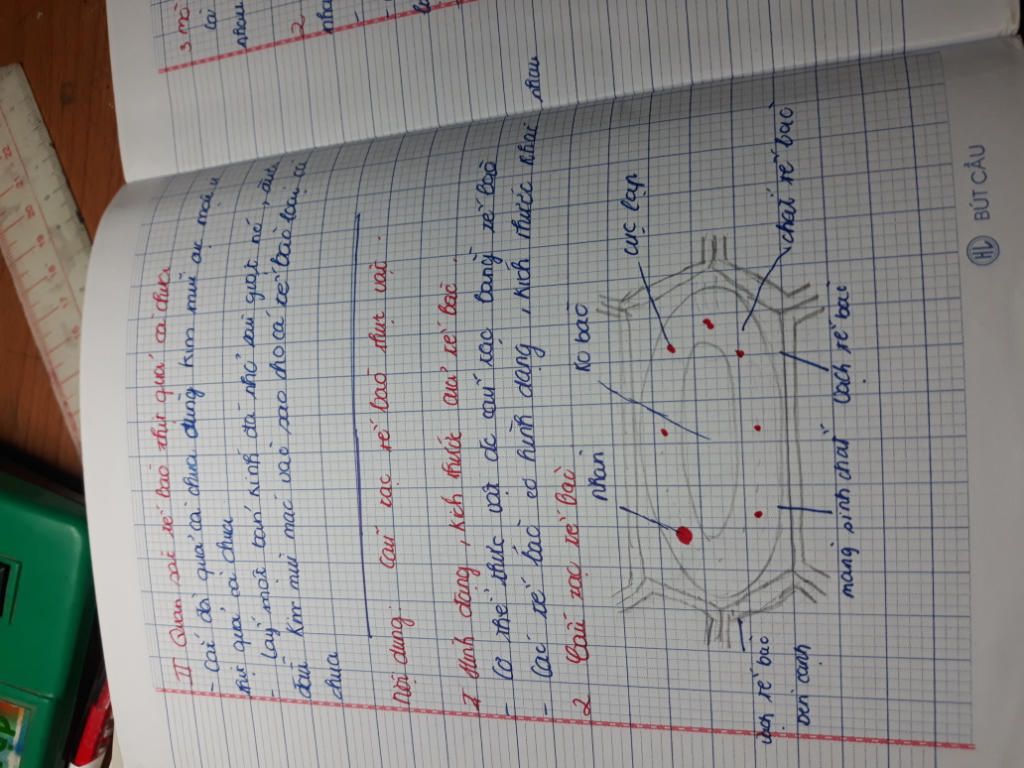 3 mô
là
nhau
2
nha
II Quan sát tế bào thịt quả cà chua
- Cắt đôi quả cà chua dùng kim mũi mác
thịt quả cà chua
- lấy một bản kính đã nhỏ sẵn giọt nước
đầu kim mũi mác vào sao cho các tế bào
chua
Nội dung: Cấu tạo tế bào thực vật.
1 Hình dạng, kích thước của tế bào.
- Cơ thể thực vật đc cấu tạo bằng tế bào
- Các tế bào có hình dạng, kích thước khác nhau
2 Cấu tạo tế bào
nhân
ko bào
lục lạp
chất tế bào
vách tế bào
màng sinh chất
vách tế bào
bên cạnh
HL BÚT CẦU